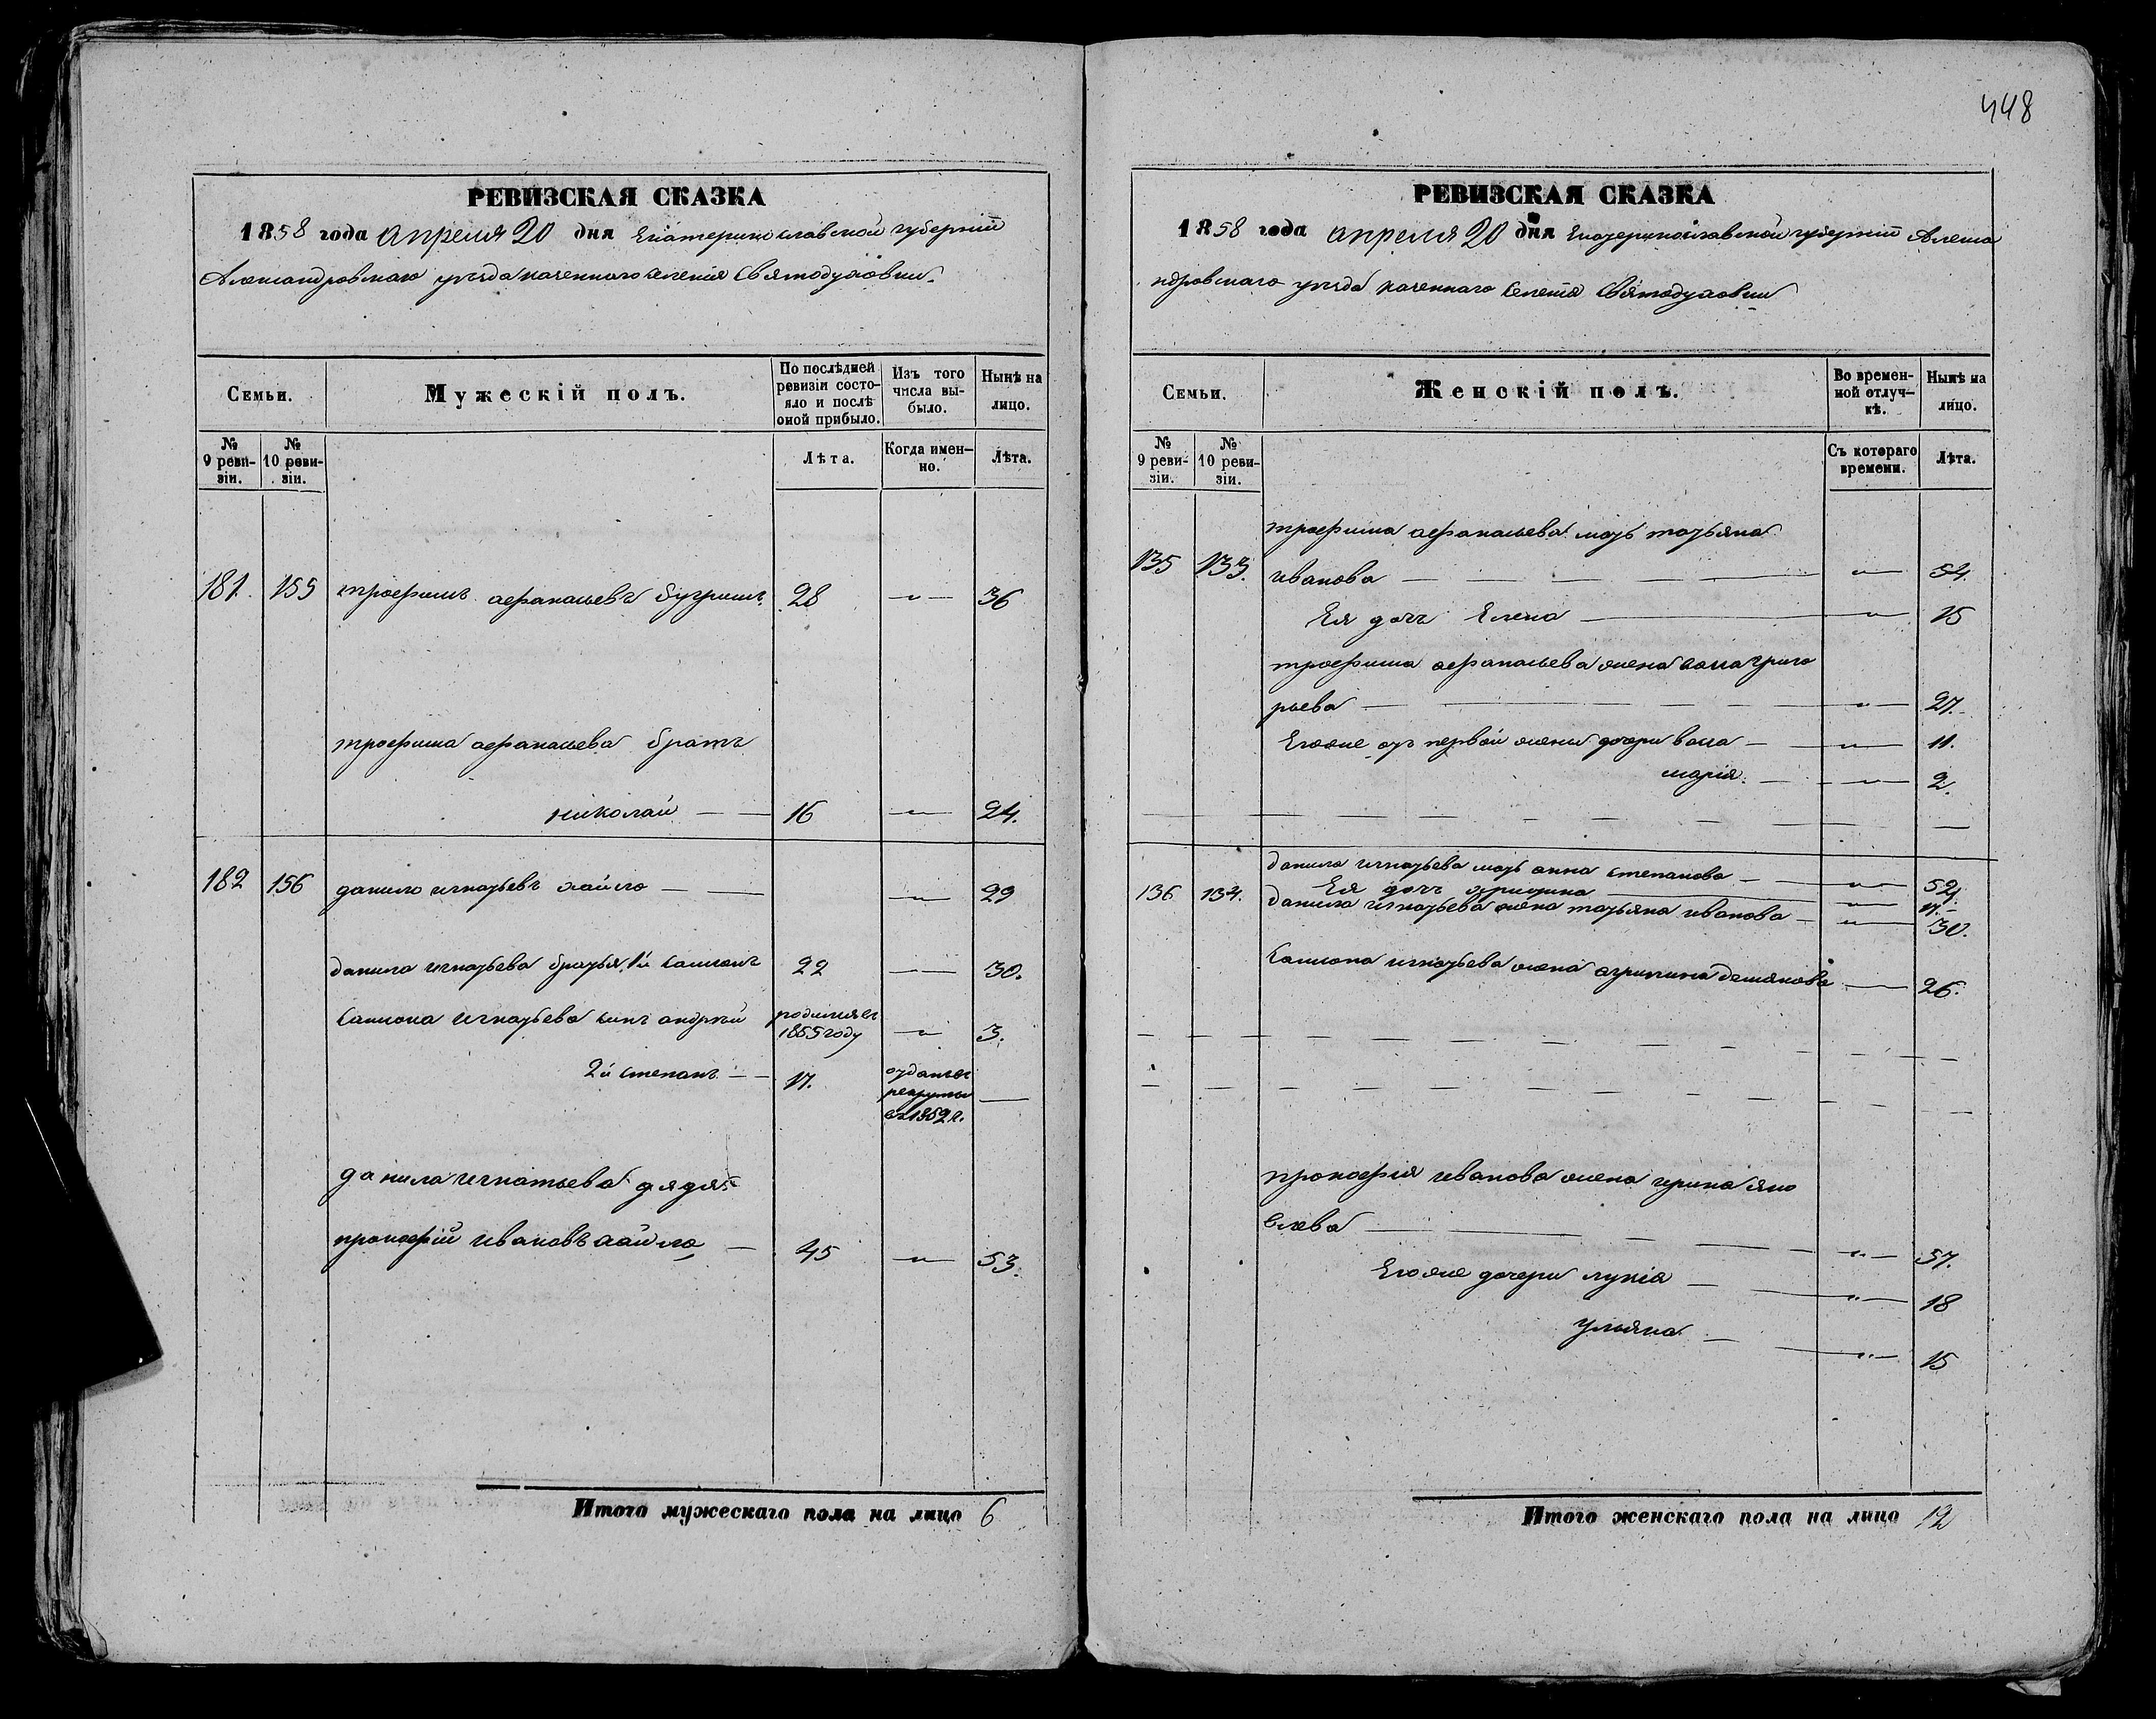 448
РЕВИЗСКАЯ СКАЗКА
1858 года апреля 20 дня Екатеринославской губернiй
Александровскаго уѣзда казенного селенiя Святодуховки
Семьи.
Мужескій полъ.
По послѣдней ревизіи состояло и послѣ оной прибыло.
Изъ того числа выбыло.
Нынѣ на лицо.
№ 9 ревизіи.
№ 10 ревизіи.
Лѣта.
Когда именно.
Лѣта.
181. 155 трофимъ афанасьевъ 28 — " — 36
трофима афанасьева братъ
николай — — 16 — " — 24.
182 156 данило игнатьевъ — — — " — 29
данила игнатьева братья 1й самсонъ 22 — — 30.
самсона игнатьева сынъ андрѣй родился въ 1855 году — " — 3.
2й степанъ — — 17. отданъ въ рекруты въ 1852 г. —
данила игнатьева дядя
прокофій ивановъ — 45 — " — 53.
Итого мужескаго пола на лицо 6
РЕВИЗСКАЯ СКАЗКА
1858 года апреля 20 дня Екатеринославской губернiй Алекса
ндровскаго уѣзда казеннаго селенiя Святодуховки
Семьи.
Женскій полъ.
Во временной отлучкѣ.
Нынѣ на лицо.
№ 9 ревизіи.
№ 10 ревизіи.
Съ котораго времени.
Лѣта.
трофима афанасьева мать татьяна
135 133. иванова — — — — — " — 54.
Ея дочь Елена — — " — 15
трофима афанасьева жена григо
рьева — — — — " — 27.
Егоже отъ первой жены дочери — — " — 11.
марія. — — — " — 2.
данила игнатьева мать анна степанова — — " — 52
136 134. Ея дочь — — " — 17.
данила игнатьева жена татьяна иванова — — " — 30.
самсона игнатьева жена агрипина демянова — 26.
прокофія иванова жена ирина яко
влева — — — — — — " — 57.
Егоже дочери лукія — — — " — 18
ульяна — — — " — 15
Итого женскаго пола на лицо 12